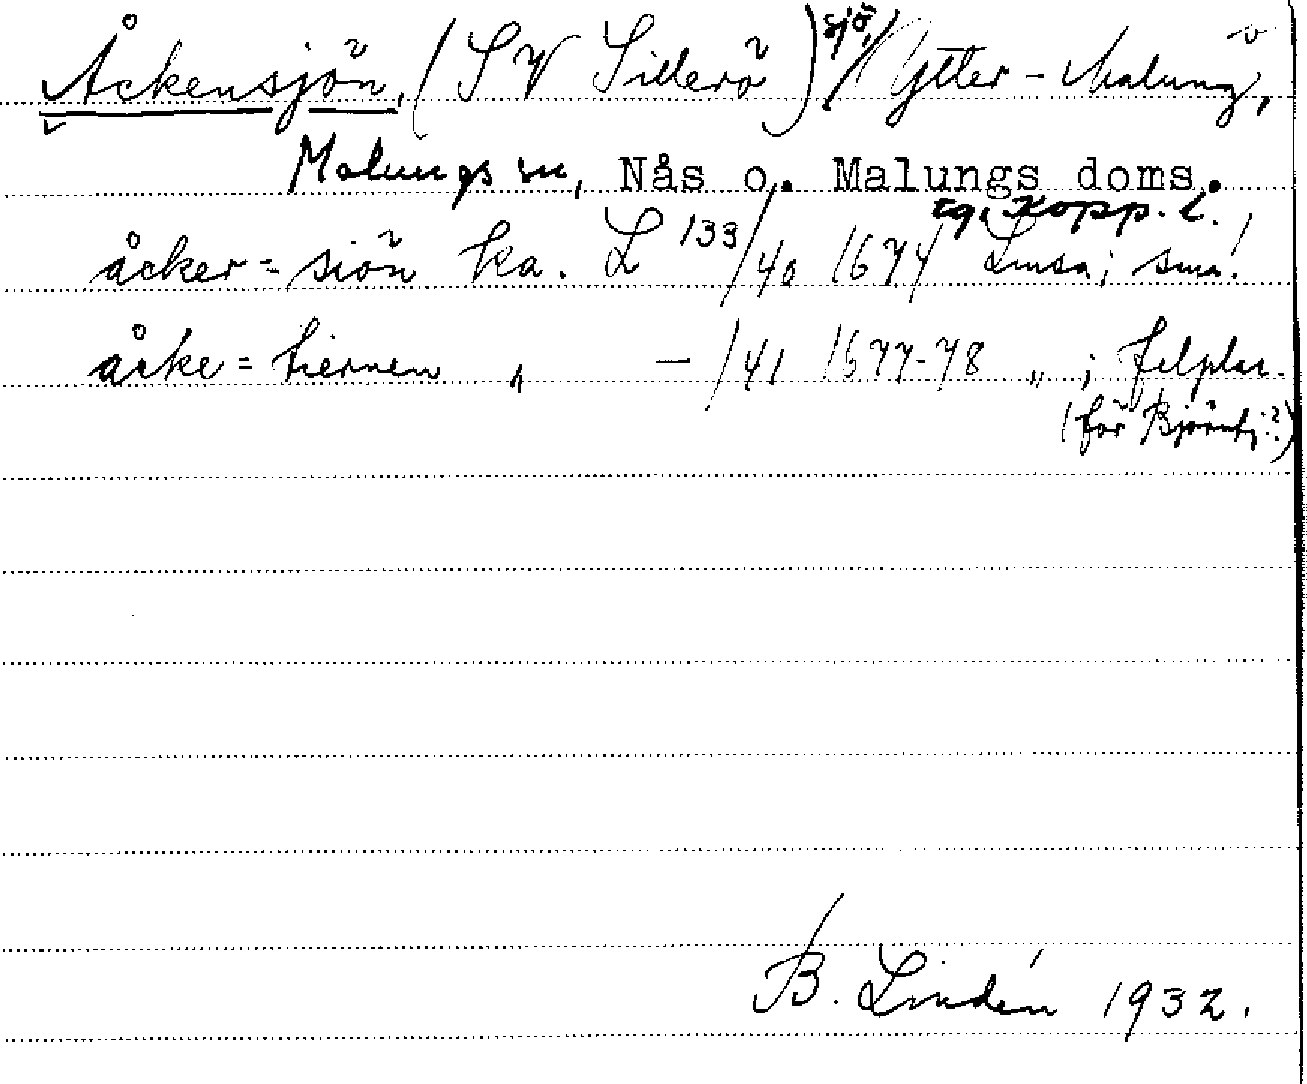 Åckensjön, (SV Sillerö) sjö, Ytter-Malung,
Malungs sn, Nås o. Malungs doms.
tg, Kopp. l.
åcker=siön ka. L 133/40 1677 Lmsa; sms!
åcke=tiernen " —/41 1677-78 " ; felplac.
(för Björntj.?)
B. Lindén 1932.